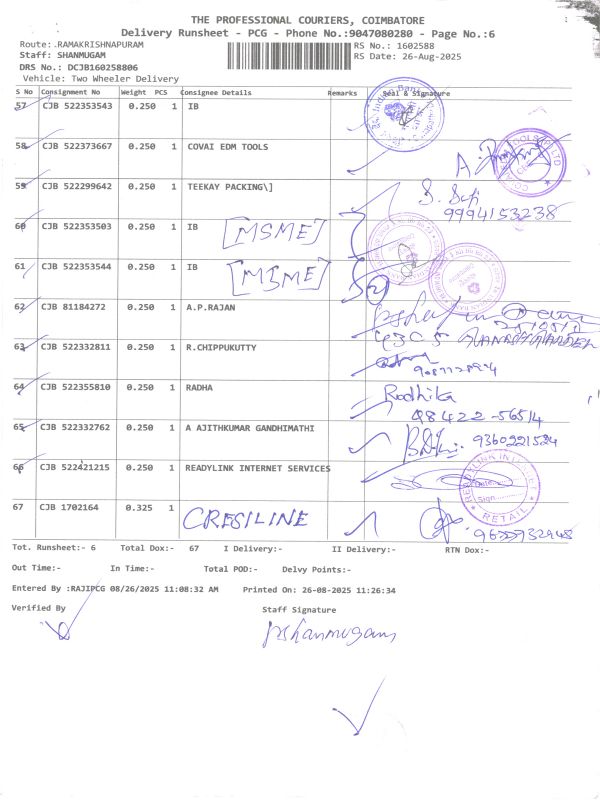 THE PROFESSIONAL COURIERS, COIMBATORE
Delivery Runsheet - PCG - Phone No.:9047080280 - Page No.:6
Route:.RAMAKRISHNAPURAM
RS No.: 1602588
Staff: SHANMUGAM
RS Date: 26-Aug-2025
DRS No.: DCJB160258806
Vehicle: Two Wheeler Delivery
S No Consignment No Weight PCS Consignee Details Remarks Seal & Signature
57 CJB 522353543 0.250 1 IB
58 CJB 522373667 0.250 1 COVAI EDM TOOLS
59 CJB 522299642 0.250 1 TEEKAY PACKING\]
9994153238
60 CJB 522353503 0.250 1 IB [MSME]
61 CJB 522353544 0.250 1 IB [MSME]
62 CJB 81184272 0.250 1 A.P.RAJAN
63 CJB 522332811 0.250 1 R.CHIPPUKUTTY
64 CJB 522355810 0.250 1 RADHA Radhika
98422-56514
65 CJB 522332762 0.250 1 A AJITHKUMAR GANDHIMATHI 9360221524
66 CJB 522421215 0.250 1 READYLINK INTERNET SERVICES
READYLINK INTERNET
Date
Sign
RETAIL
67 CJB 1702164 0.325 1 CRESILINE
Tot. Runsheet:- 6 Total Dox:- 67 I Delivery:- II Delivery:- RTN Dox:-
Out Time:- In Time:- Total POD:- Delvy Points:-
Entered By :RAJIPCG 08/26/2025 11:08:32 AM Printed On: 26-08-2025 11:26:34
Verified By Staff Signature
pshanmugam